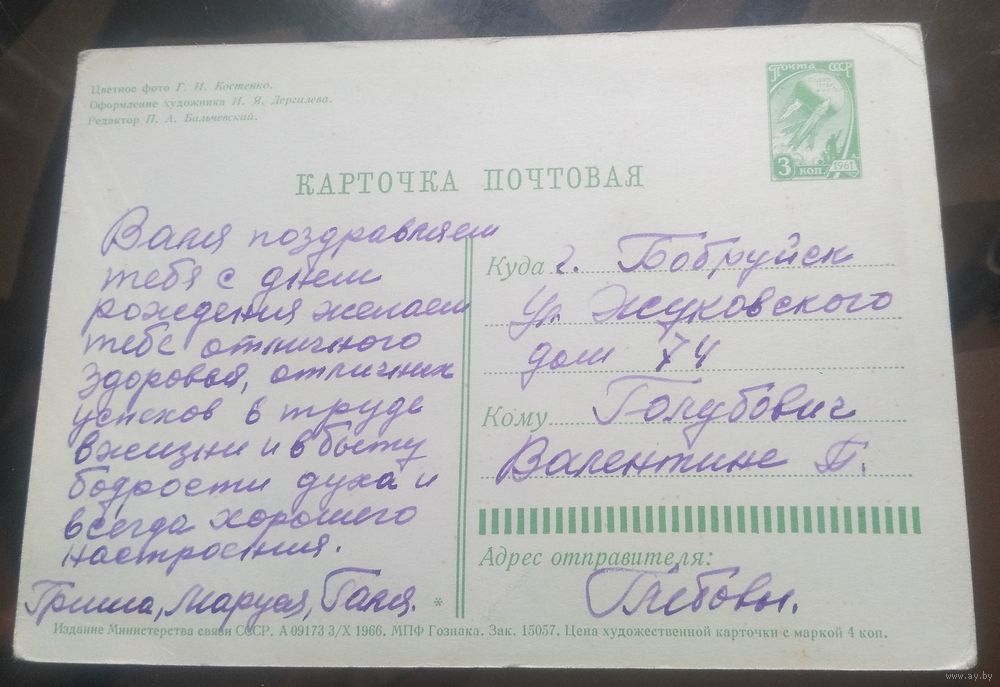 Цветное фото Г. И. Костенко.
Оформление художника И. Я. Дергилева.
Редактор П. А. Бальчевский.
Почта СССР
3 коп. 1961
КАРТОЧКА ПОЧТОВАЯ
Валя поздравляем
тебя с днем
рождения желаем
тебе отличного
здоровья, отличных
успехов в труде
в жизни и в быту
бодрости духа и
всегда хорошего
настроения.
Гриша, Маруся, Галя.
*
Куда г. Бобруйск
ул. Жуковского
дом 74
Кому Голубович
Валентине Г.
Адрес отправителя:
Глебовы.
Издание Министерства связи СССР. А 09173 3/X 1966. МПФ Гознака. Зак. 15057. Цена художественной карточки с маркой 4 коп.
www.ay.by